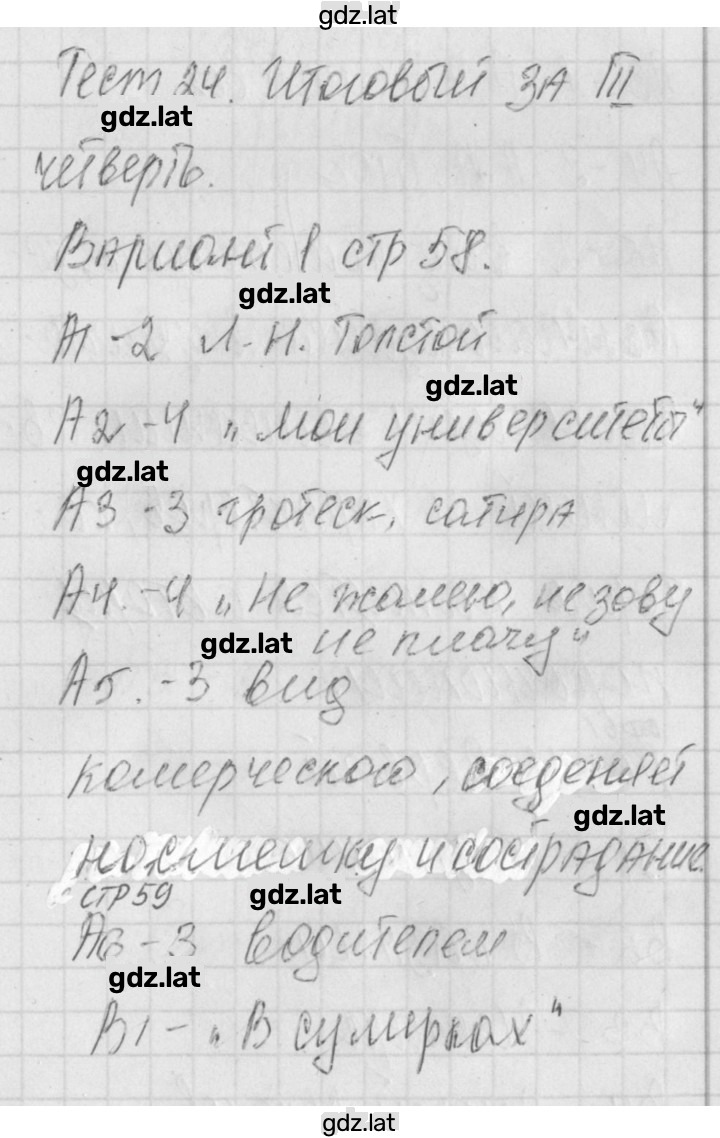 gdz.lat
Тест 24. Итоговый за III
gdz.lat
четверть.
Вариант 1 стр 58.
gdz.lat
А1 - 2 Л. Н. Толстой
gdz.lat
А2 - 4 „Мои университеты"
gdz.lat
А3 - 3 гротеск, сатира
А4. - 4 „Не жалею, не зову
gdz.lat не плачу"
А5. - 3 вид
комерческого, соеденяет
gdz.lat
насмешку и сострадание.
стр 59 gdz.lat
А6 - 3 водителем
gdz.lat
В1 - „В сумерках"
gdz.lat